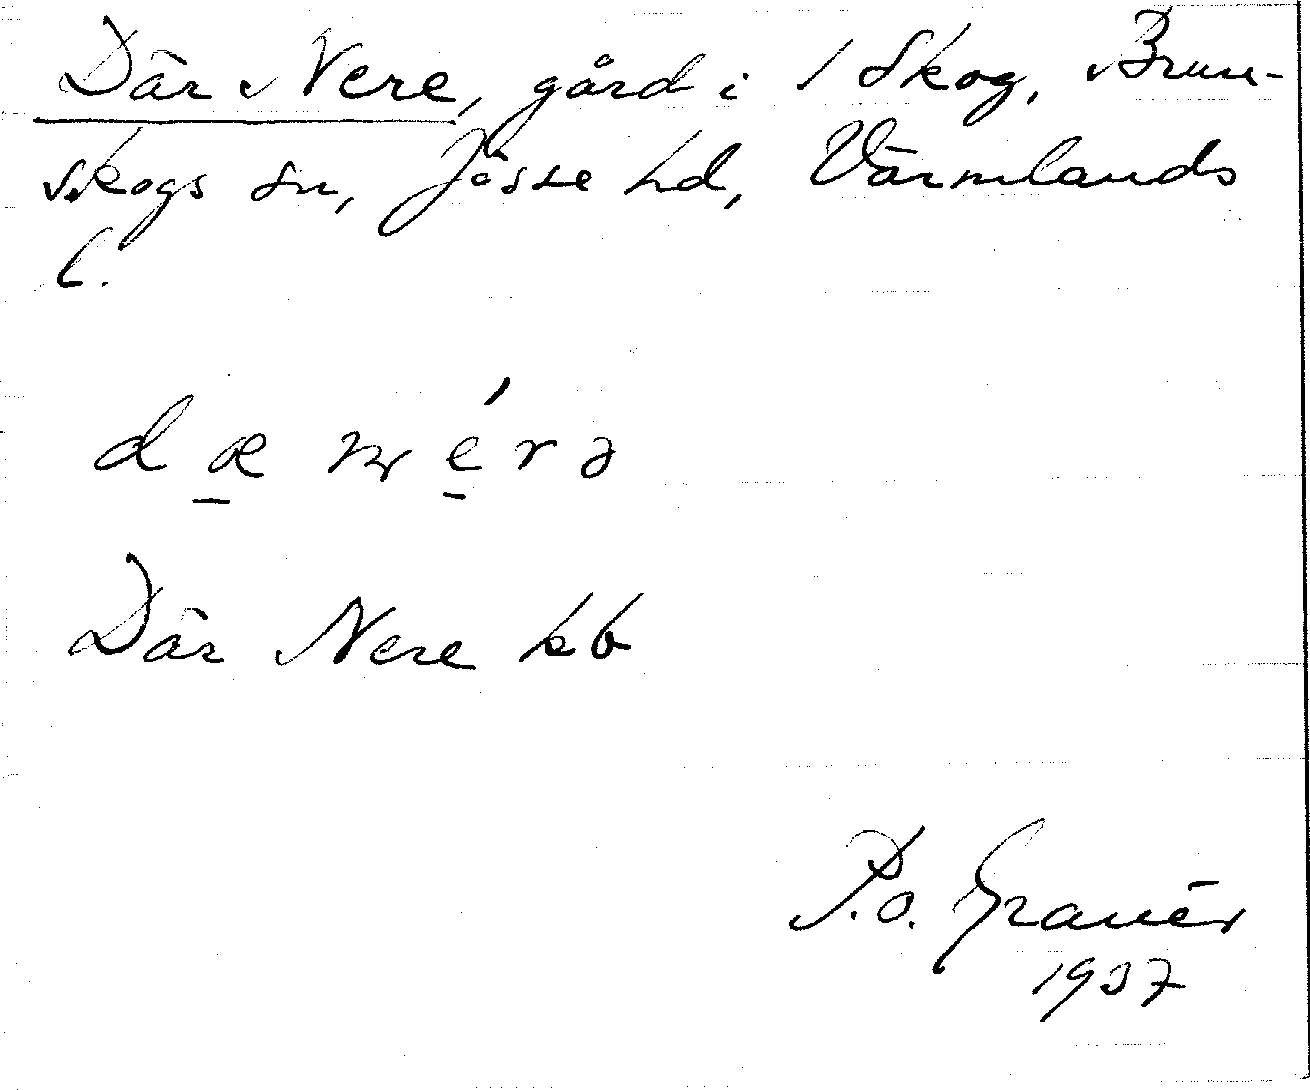 Där Nere, gård i 1 Skog, Brun-
skogs sn, Jösse hd, Värmlands
l.
dæ nérə
Där Nere kb
P.O. Granér
1937